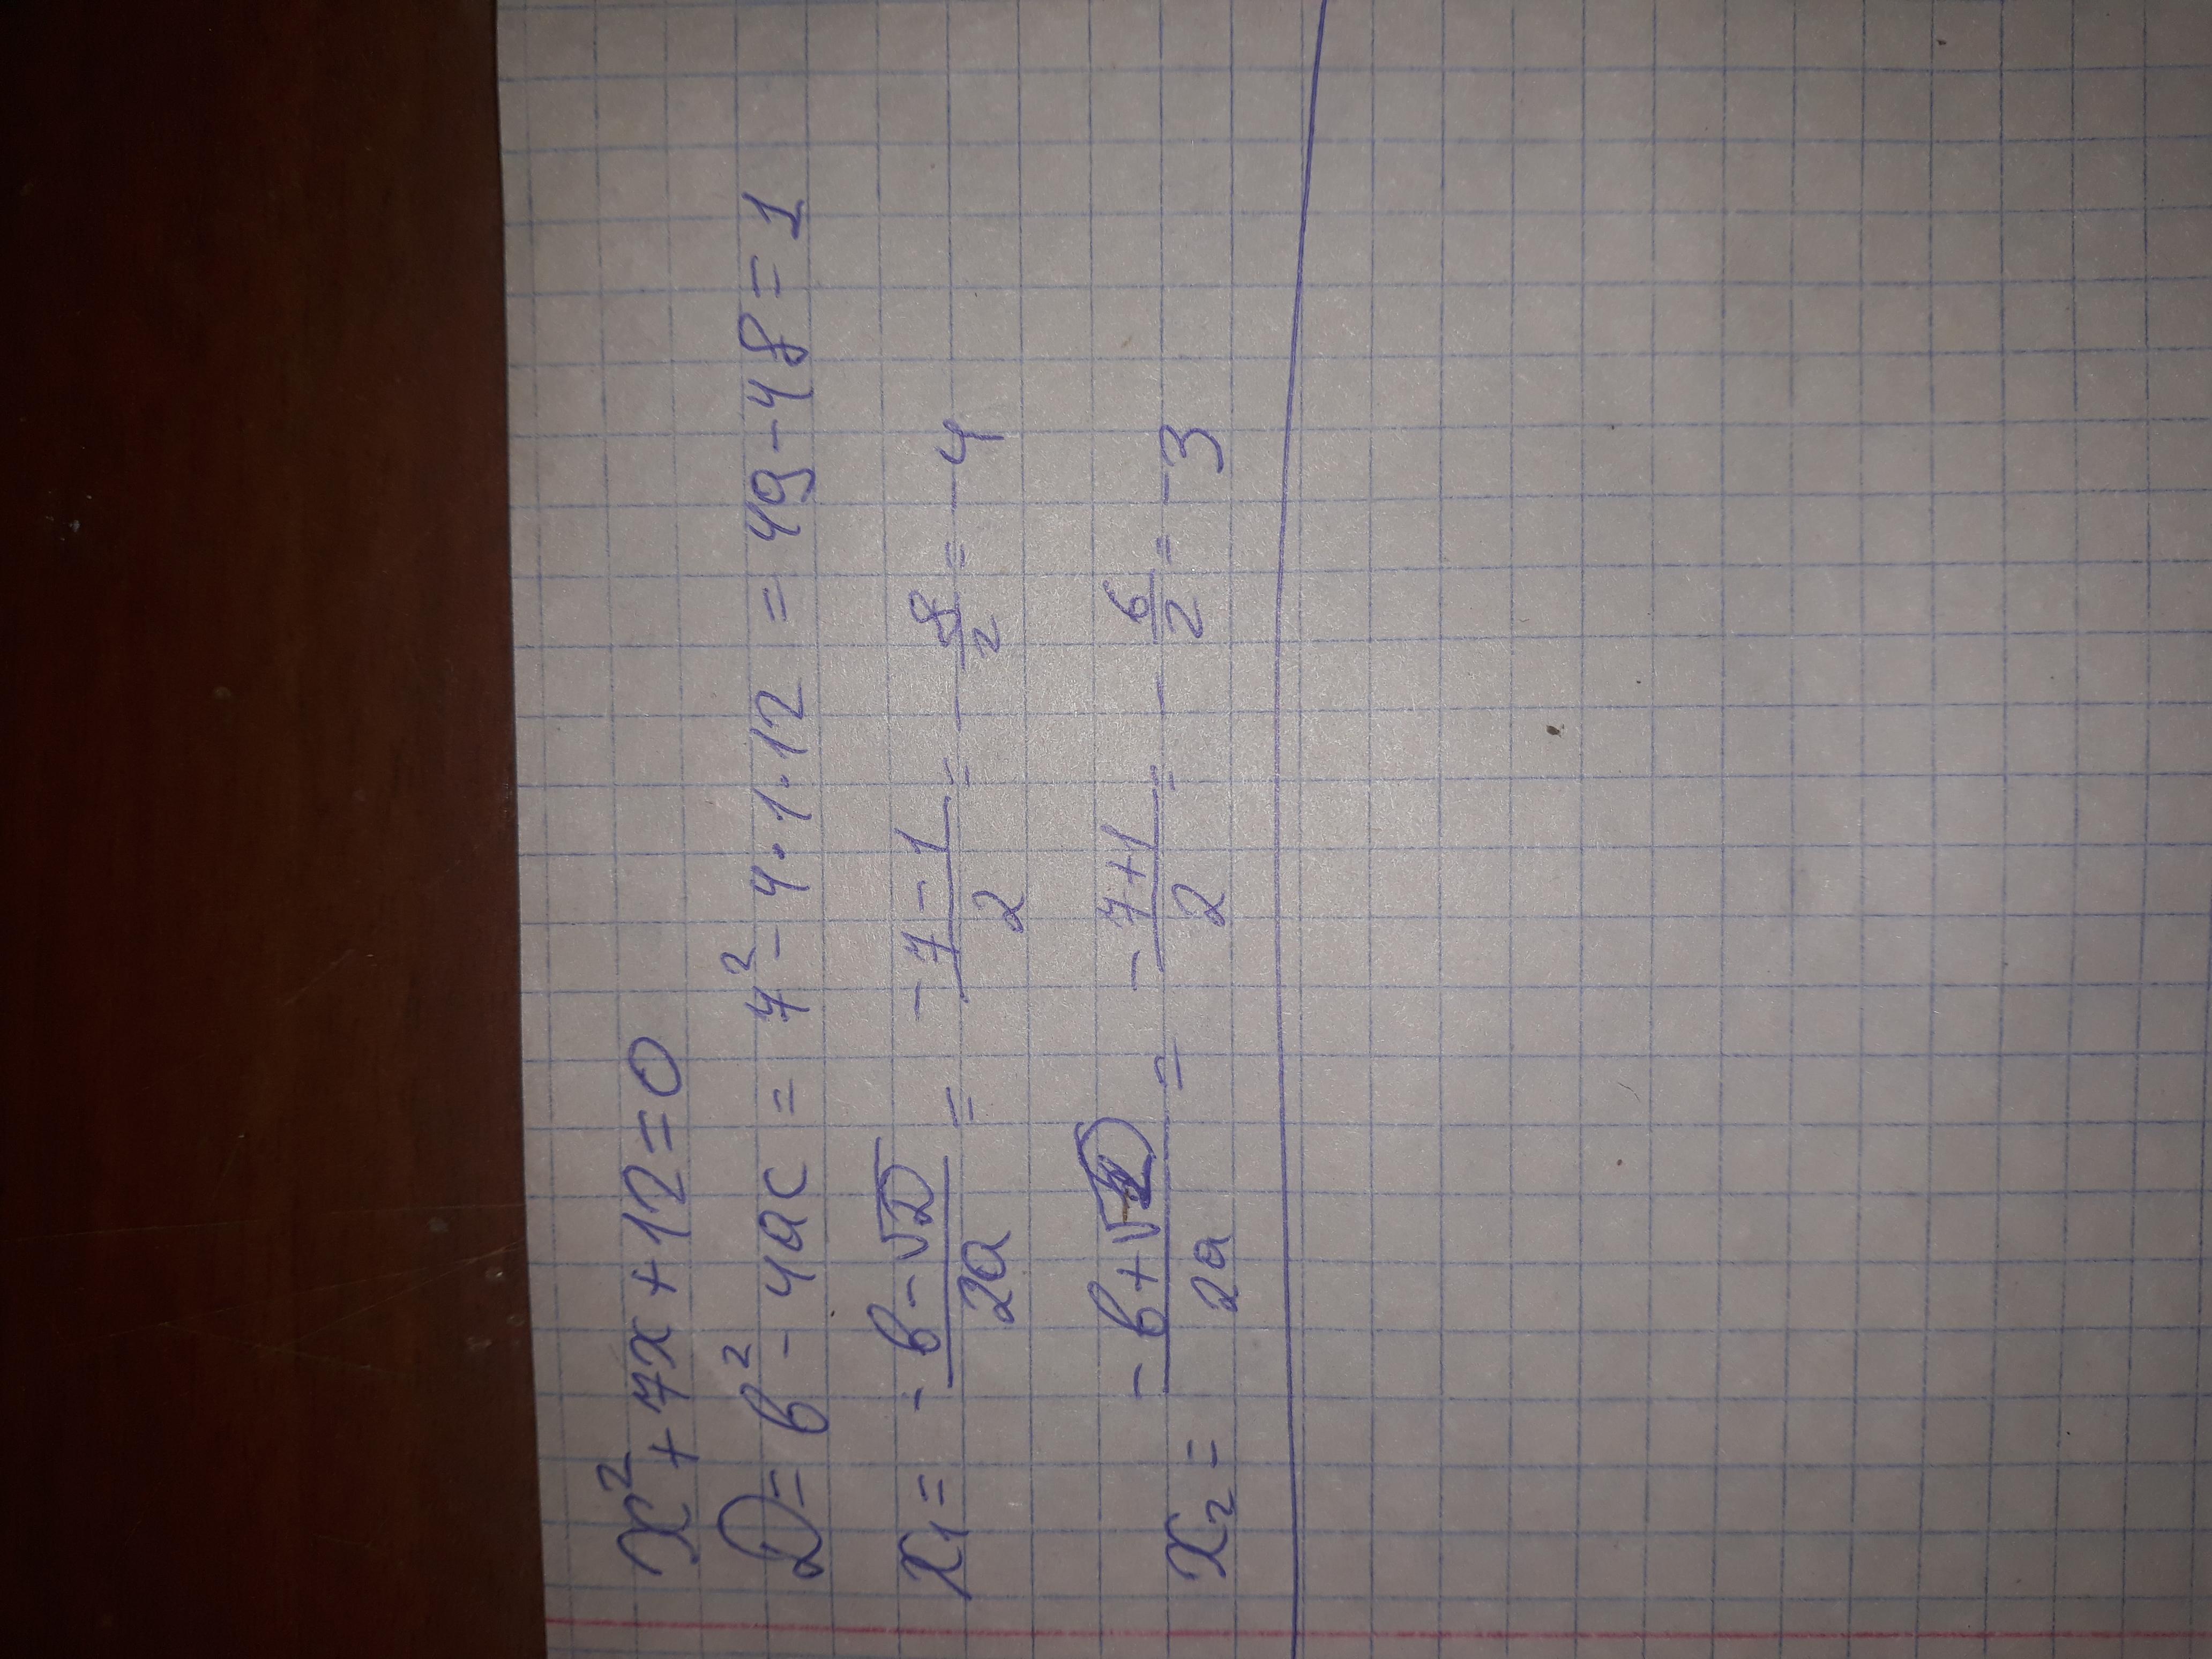 x² + 7x + 12 = 0
D = b² - 4ac = 7² - 4 · 1 · 12 = 49 - 48 = 1
x₁ = (-b - √D)/(2a) = (-7 - 1)/2 = -8/2 = -4
x₂ = (-b + √D)/(2a) = (-7 + 1)/2 = -6/2 = -3